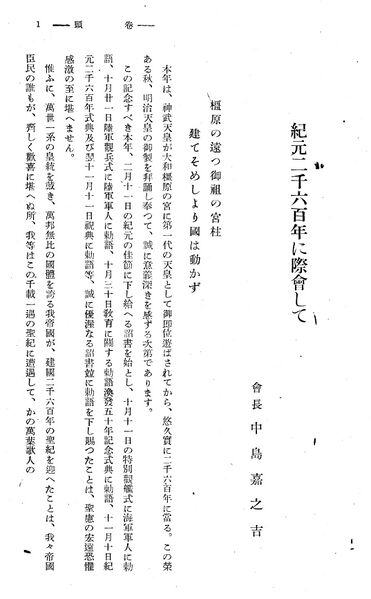 1 ― 頭卷 ―
紀元二千六百年に際會して
會長 中島嘉之吉
橿原の遠つ御祖の宮柱
建てそめしより國は動かず
本年は、神武天皇が大和橿原の宮に第一代の天皇として御即位遊ばされてから、悠久實に二千六百年に當る。この榮
ある秋、明治天皇の御製を拜誦し奉つて、誠に意義深きを感ずる次第であります。
この記念すべき本年、二月十一日の紀元の佳節に下し給へる詔書を始とし、十月十一日の特別觀艦式に海軍軍人に勅
語、十月廿一日陸軍觀兵式に陸軍軍人に勅語、十月三十日敎育に關する勅語渙發五十年記念式典に勅語、十一月十日紀
元二千六百年式典及び翌十一月十一日祝典に勅語等、誠に優渥なる詔書竝に勅語を下し賜つたことは、聖慮の宏遠恐懼
感激の至に堪へません。
惟ふに、萬世一系の皇統を戴き、萬邦無比の國體を誇る我帝國が、建國二千六百年の聖紀を迎へたことは、我々帝國
臣民の誰もが、齊しく歡喜に堪へぬ所、我等はこの千載一遇の聖紀に遭遇して、かの萬葉歌人の